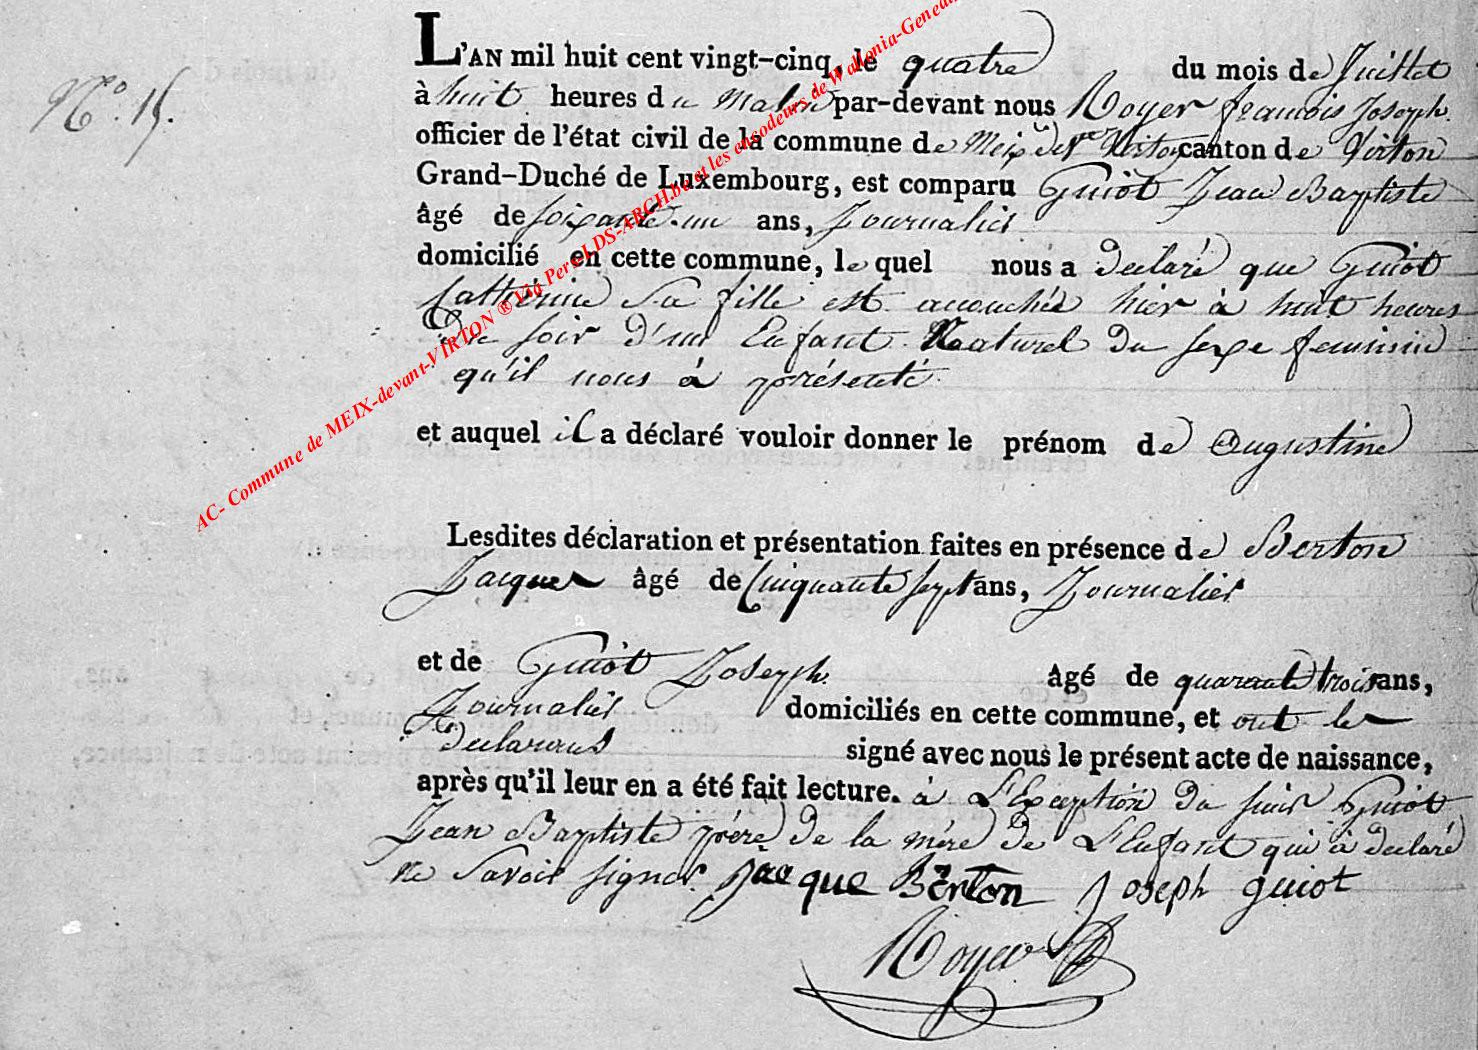 N.° 15.
L'AN mil huit cent vingt-cinq, le quatre du mois de Juillet
à huit heures du Matin par-devant nous Royer francois Joseph.
officier de l'état civil de la commune de Meix devt Virton canton de Virton
Grand-Duché de Luxembourg, est comparu Guiot Jean Baptiste
âgé de soixante-un ans, Journalier
domicilié en cette commune, le quel nous a declaré que Guiot
Catherine Sa fille est accouchée hier à huit heures
Du soir d'un Enfant Naturel Du sexe feminin
qu'il nous à présenté.
et auquel il a déclaré vouloir donner le prénom de Augustine
Lesdites déclaration et présentation faites en présence de Berton
Jacques âgé de Cinquante sept ans, Journalier
et de Guiot Joseph. âgé de quarante trois ans,
Journalier domiciliés en cette commune, et ont les
declarans signé avec nous le présent acte de naissance,
après qu'il leur en a été fait lecture. à L'Exception du Guiot
Jean Baptiste père de la mère de L'Enfant qui à declaré
ne Savoir signer. Jacque Berton Joseph guiot
Royer
AC- Commune de MEIX-devant-VIRTON ® Via Pere LDS-ARCH.be et les encodeurs de Wallonia-Geneal